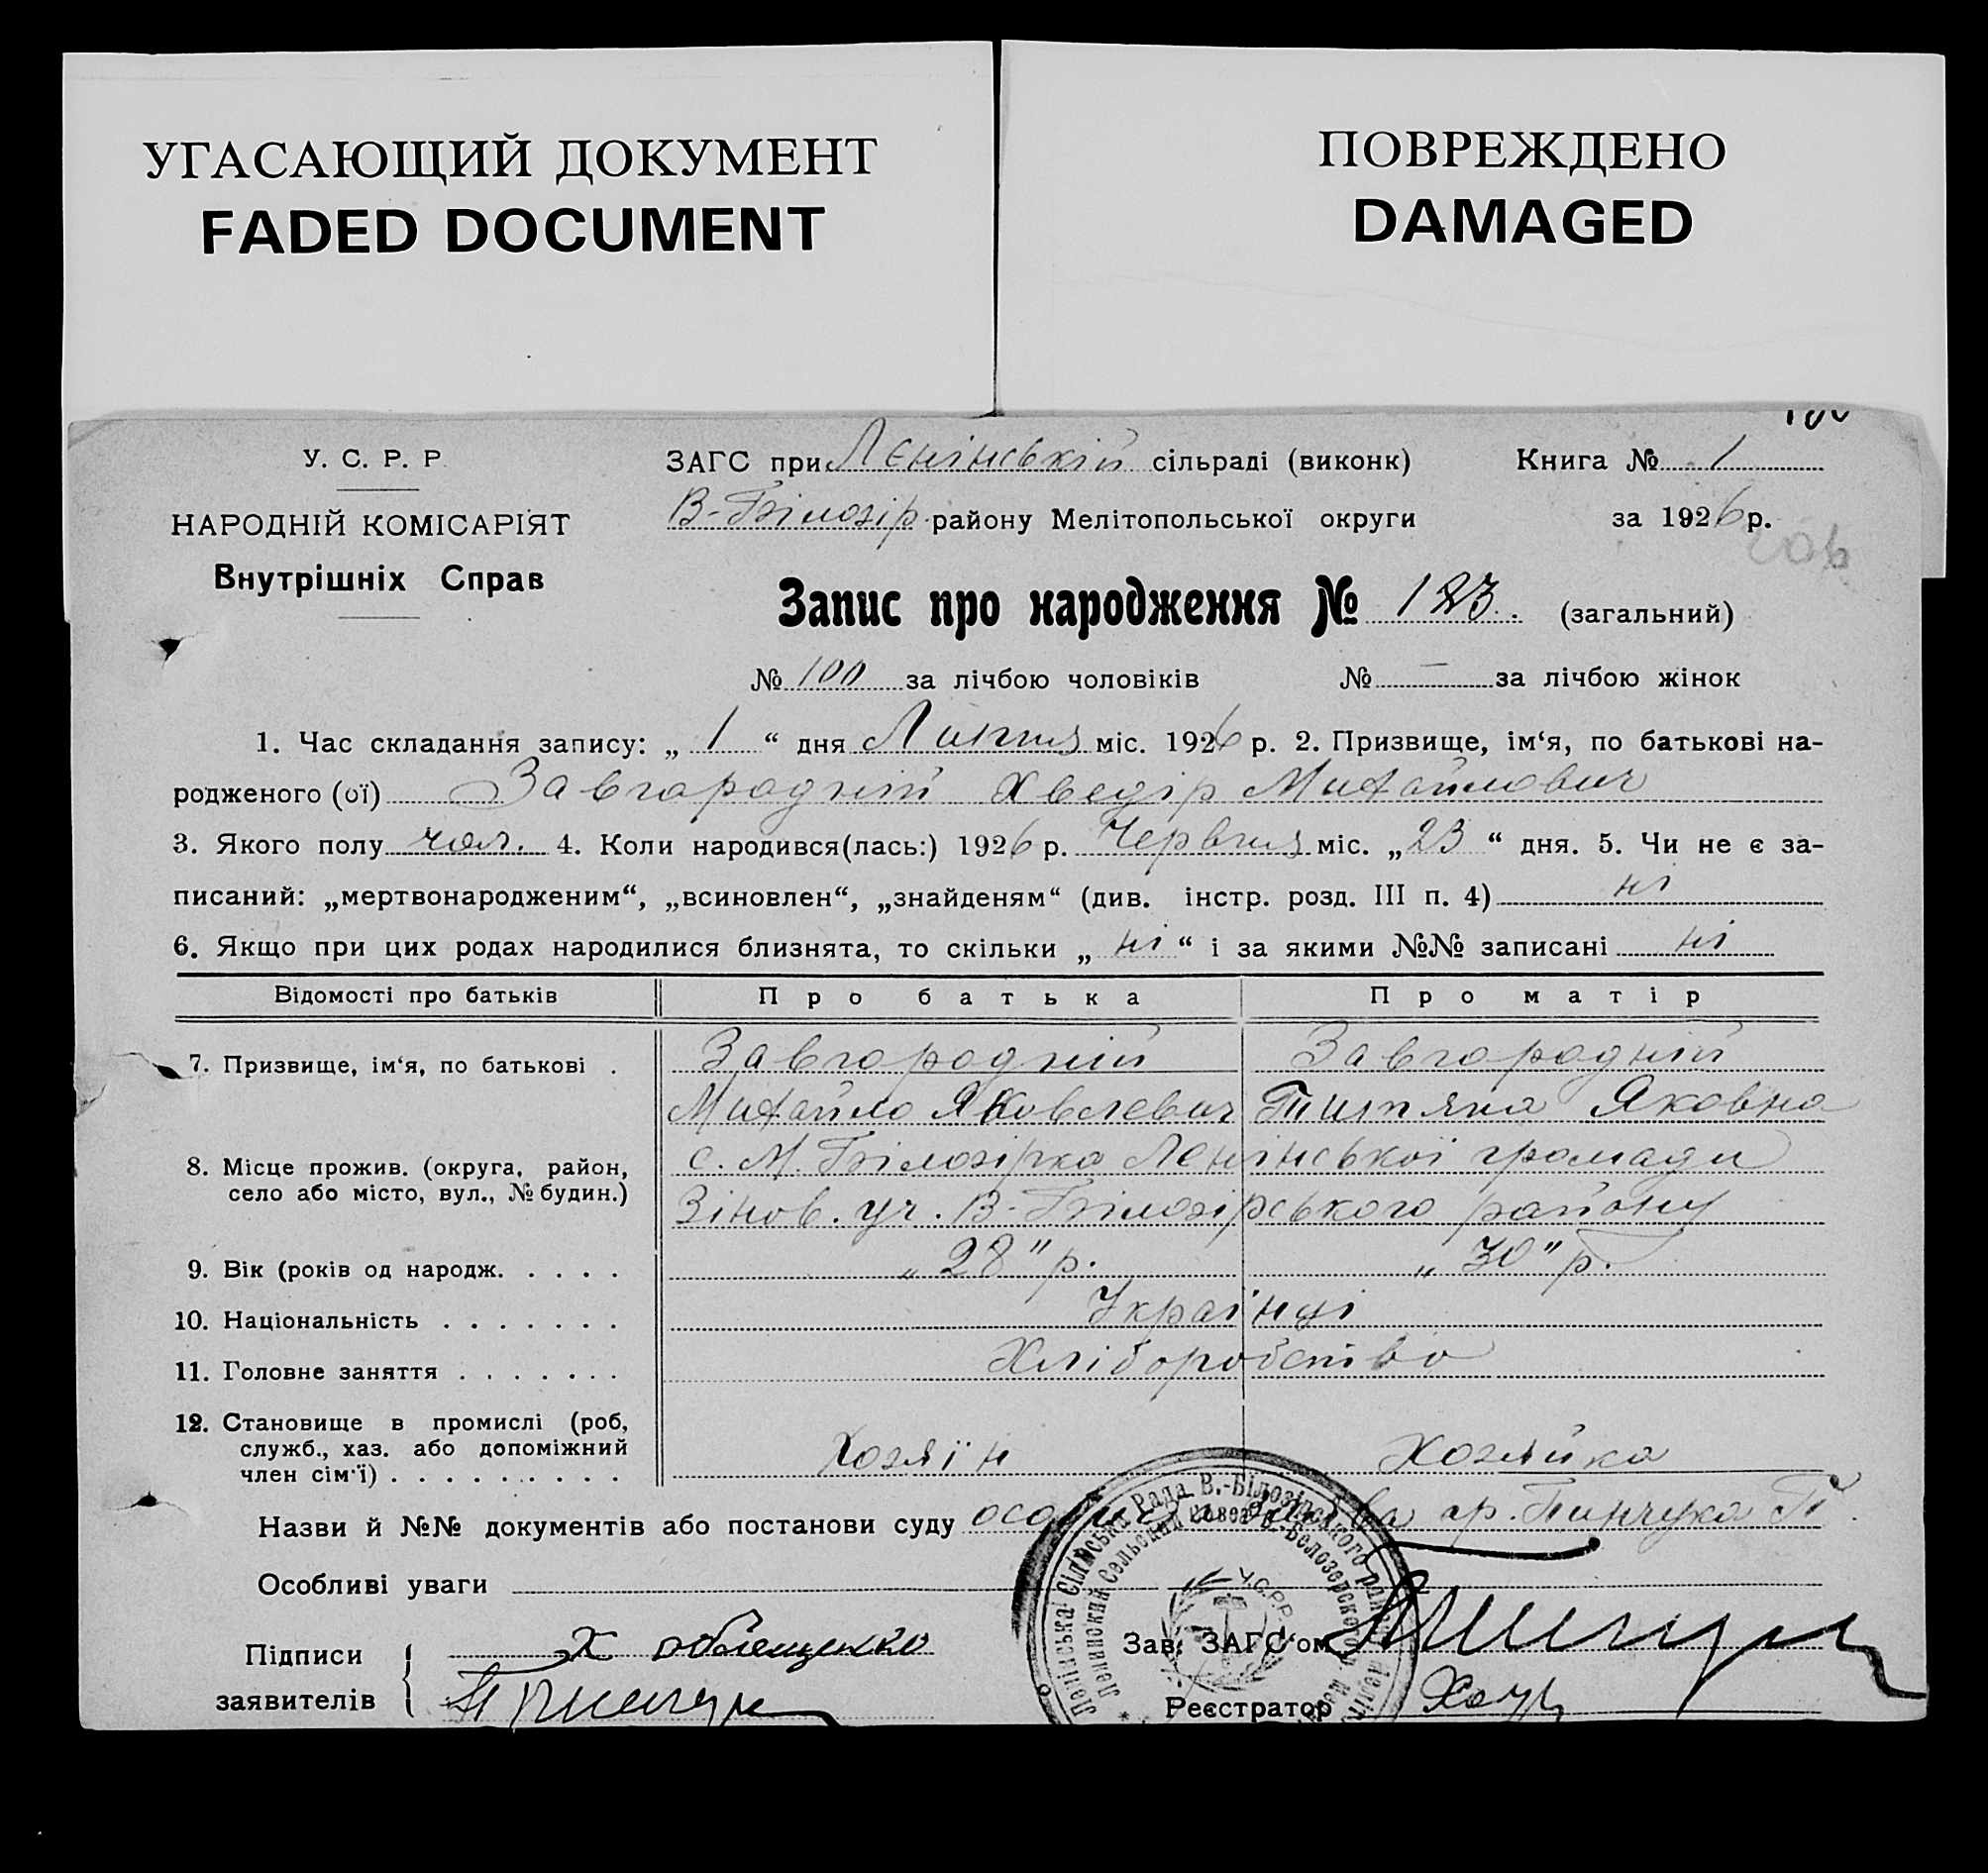 УГАСАЮЩИЙ ДОКУМЕНТ
FADED DOCUMENT
ПОВРЕЖДЕНО
DAMAGED
У. С. Р. Р.
НАРОДНІЙ КОМІСАРІЯТ
Внутрішніх Справ
ЗАГС при Лєнінській сільраді (виконк)
Книга № 1
В-Білозір району Мелітопольської округи
за 1926 р.
206
Запис про народження № 123. (загальний)
№ 100 за лічбою чоловіків № — за лічбою жінок
1. Час складання запису: „ 1 “ дня Липня міс. 1926 р. 2. Призвище, ім‘я, по батькові на-
родженого (ої) Завгородній Хведір Михайлович
3. Якого полу чол. 4. Коли народився(лась:) 1926 р. Червня міс. „ 23 “ дня. 5. Чи не є за-
писаний: „мертвонародженим“, „всиновлен“, „знайденям“ (див. інстр. розд. III п. 4) ні
6. Якщо при цих родах народилися близнята, то скільки „ ні “ і за якими №№ записані ні
Відомості про батьків Про батька Про матір
7. Призвище, ім‘я, по батькові . Завгородній Завгородній
Михайло Яковлевич Титяна Яковна
8. Місце прожив. (округа, район, с. М. Білозірка Ленінської громади
село або місто, вул., № будин.) Зінов. уч. В-Білозірського району
9. Вік (років од народж. . . . . „ 28 " р. „ 30 " р.
10. Національність . . . . . . . Українці
11. Головне заняття . . . . . . . Хліборобство
12. Становище в промислі (роб,
служб., хаз. або допоміжний
член сім‘ї) . . . . . . . . . Хозяїн Хозяйка
Назви й №№ документів або постанови суду особиста заява гр. Пинчука П.
Особливі уваги
Ленінська Сільська Рада В.-Білозірського
Ленинский Сельский Совет В.-Белозерского
У.С.Р.Р.
Підписи
заявителів
Х
Зав. ЗАГС‘ом
Реєстратор